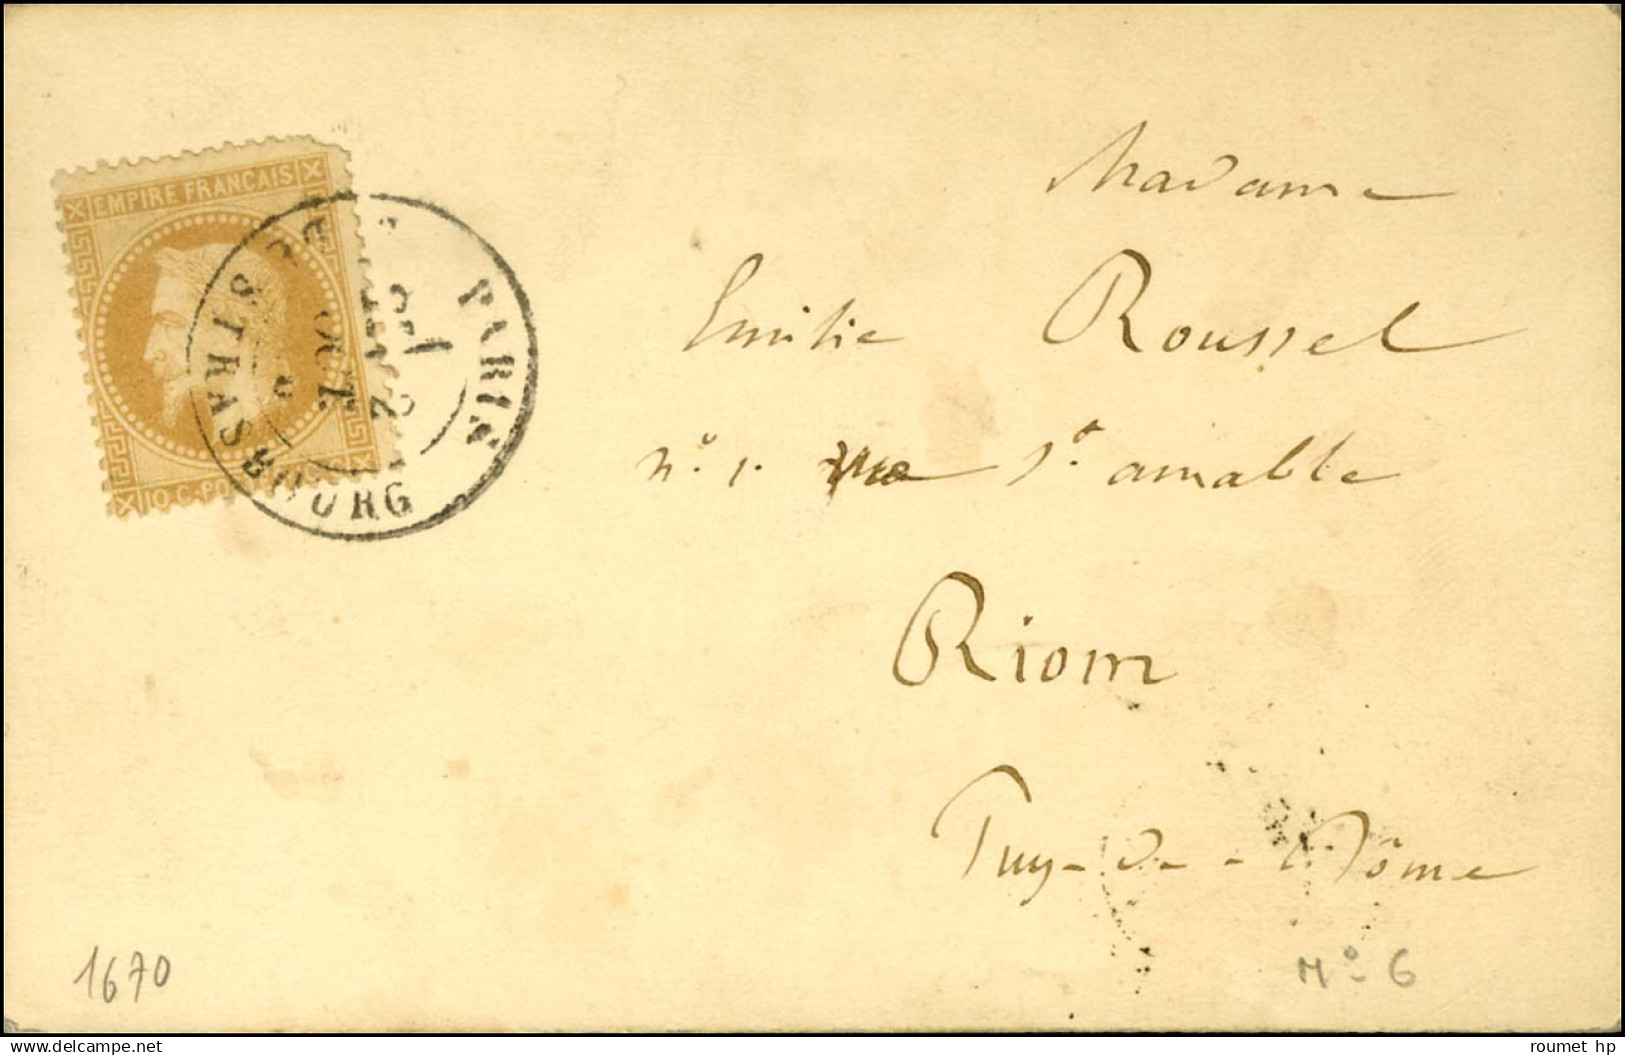 EMPIRE FRANÇAIS
10.C.PO
PARIS
STRASBOURG
Madame
Emilie Roussel
n°. 1. rue St. amable
Riom
Puy-de-Dôme
1670
N°-6
delcampe.net
roumet hp